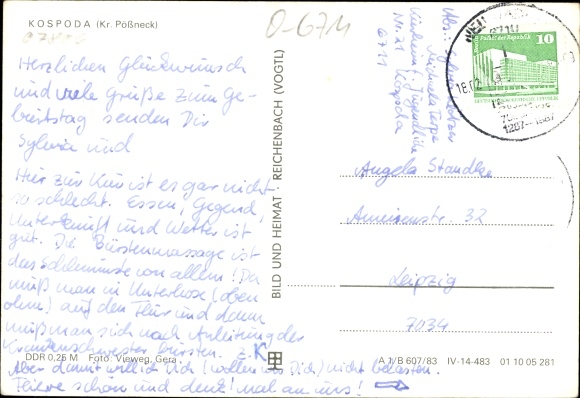 KOSPODA (Kr. Pößneck)
O-6711
Herzlichen Glückwunsch
und viele Grüße zum Ge-
burtstag senden Dir
Sylvia und
Hier zur Kur ist es gar nicht
so schlecht. Essen, Gegend,
Unterkunft und Wetter ist
gut. Die Bürstenmassage ist
das Schlimmste von allem! Da
muß man in Unterhose (oben
ohne) auf den Flur und dann
muß man sich nach Anleitung der
Krankenschwester bürsten.
Aber damit will ich Dich (wollen wir Dich) nicht belasten.
Feiere schön und denk' mal an uns!
DDR 0,25 M Foto: Vieweg, Gera
BILD UND HEIMAT · REICHENBACH (VOGTL)
A 1/B 607/83 IV-14-483 01 10 05 281
Abs: Sylvia
Michaela
Kinder u. Jugendliche
Nr. 21 Kospoda
6711
Palast der Republik 10
6711
18.02
1287-1987
Angela Standke
Ameisenstr. 32
Leipzig
7034